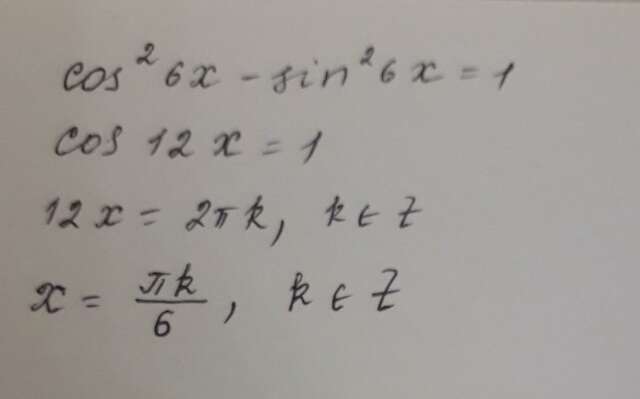 cos² 6x - sin² 6x = 1
cos 12x = 1
12x = 2πk, k ∈ Z
x = πk/6, k ∈ Z